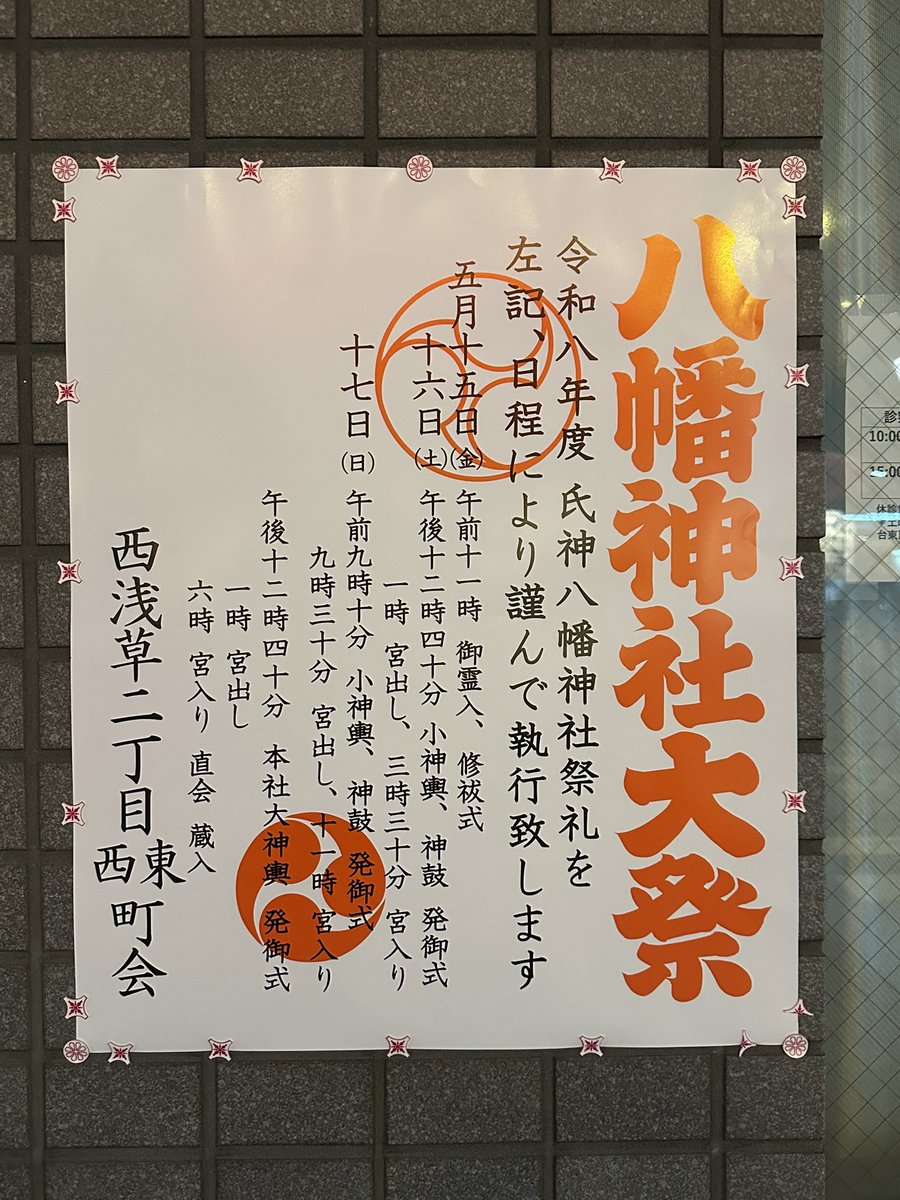 八幡神社大祭
令和八年度 氏神八幡神社祭礼を
左記、日程により謹んで執行致します
五月十五日(金) 午前十一時 御霊入、修祓式
十六日(土) 午後十二時四十分 小神輿、神鼓 発御式
一時 宮出し、三時三十分 宮入り
十七日(日) 午前九時十分 小神輿、神鼓 発御式
九時三十分 宮出し、十一時 宮入り
午後十二時四十分 本社大神輿 発御式
一時 宮出し
六時 宮入り 直会 蔵入
西浅草二丁目東西町会
10:00
15:00